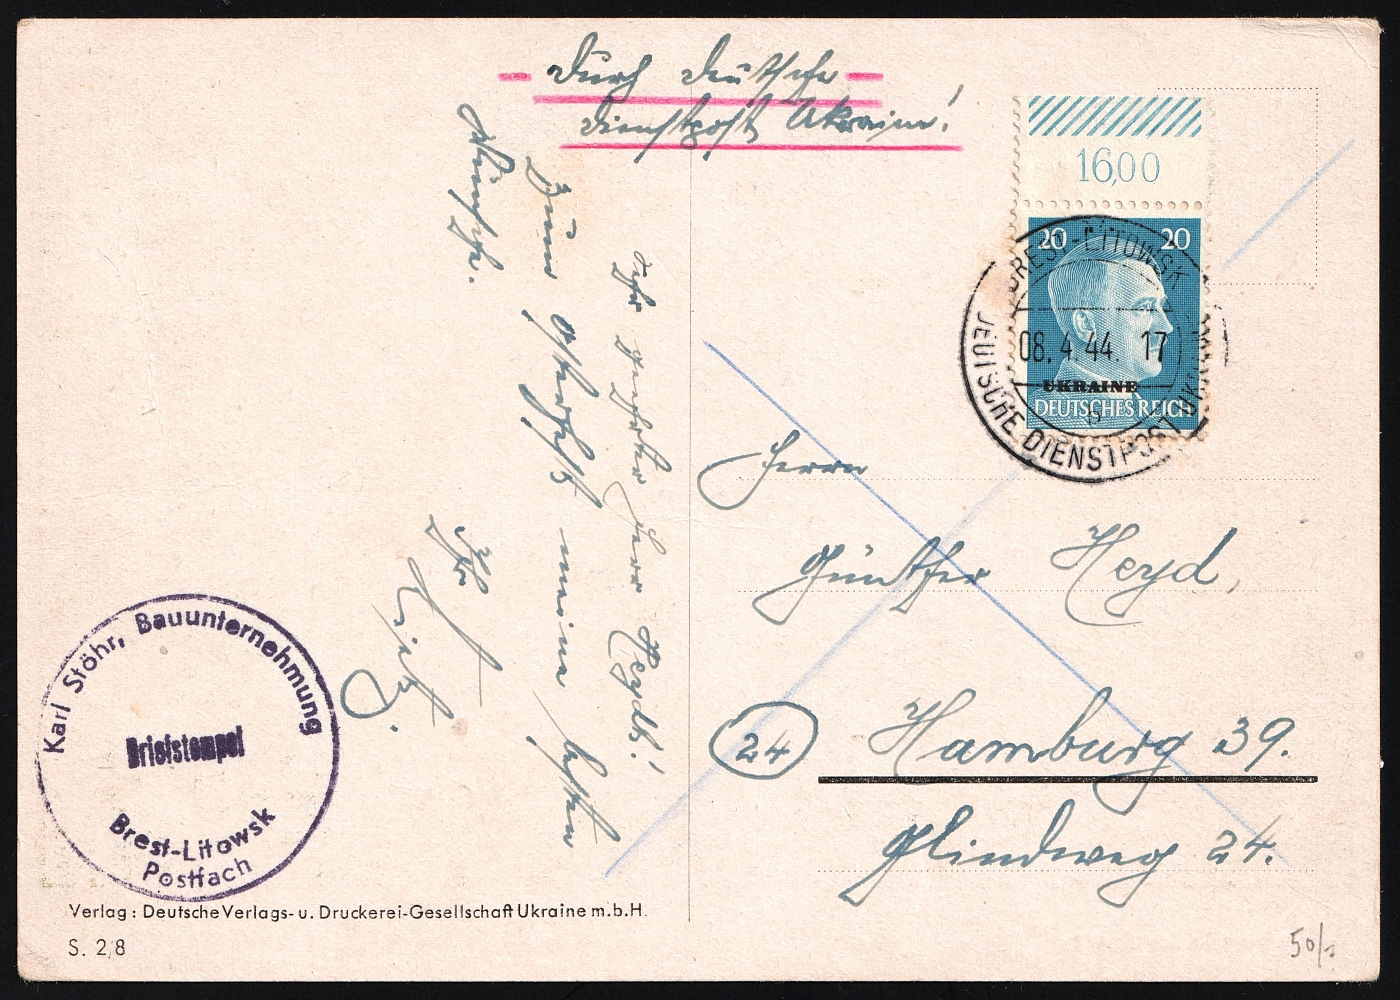 Durch Deutsche
Dienstpost Ukraine!
16,00
20 20
BREST-LITOWSK
08.4.44. 17
UKRAINE
DEUTSCHES REICH
DEUTSCHE DIENSTPOST UKRAINE
Sehr geehrter Herr Heydt!
Zum Osterfest meine besten
Wünsche.
Ihr
Herrn
Günther Heyd,
24 Hamburg 39.
Glindweg 24.
Karl Stöhr, Bauunternehmung
Briefstempel
Brest-Litowsk
Postfach
Verlag: Deutsche Verlags- u. Druckerei-Gesellschaft Ukraine m.b.H.
S. 2/8
50/-